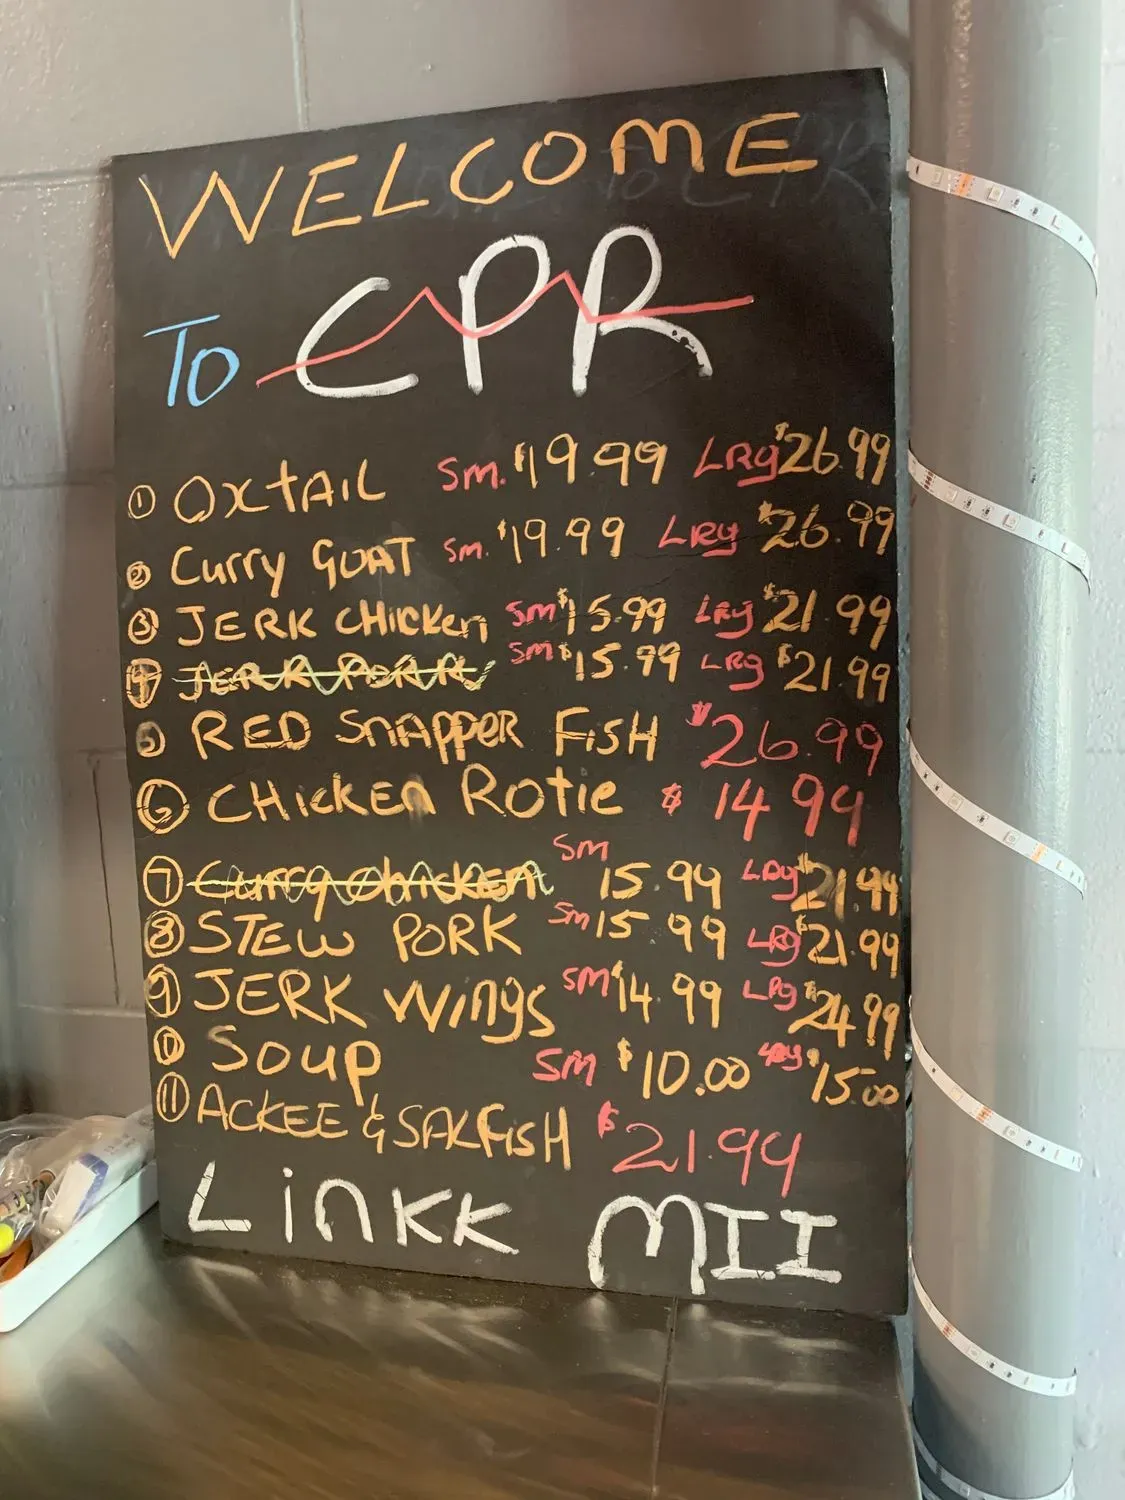 WELCOME
To CPR
① OxtAiL Sm. $19.99 LRg $26.99
② Curry GOAT Sm. $19.99 LRg $26.99
③ JERK CHicKen Sm $15.99 LRg $21.99
④ JERK PORK Sm $15.99 LRg $21.99
⑤ RED SnAppeR FisH $26.99
⑥ CHicKen Rotie $14.99
⑦ Curry chicken Sm 15.99 LRg $21.99
⑧ STEW PORK Sm 15.99 LRg $21.99
⑨ JERK Wings SM $14.99 LRg $24.99
⑩ Soup SM $10.00 LRg $15.00
⑪ ACKEE & SALFisH $21.99
LinKK MII